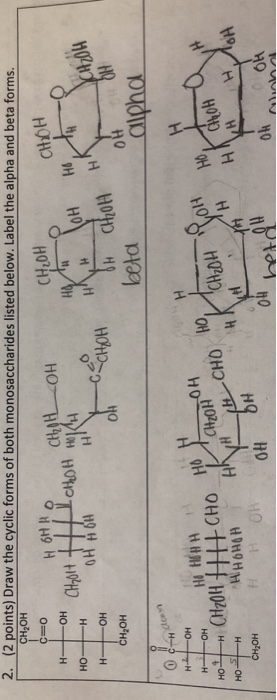 2. (2 points) Draw the cyclic forms of both monosaccharides listed below. Label the alpha and beta forms.
CH₂OH
C=O
H OH
HO H
H OH
CH₂OH
H OH H O
CH₂OH CH₂OH
OH H OH
CH₂OH OH
HO H
H
C=O
CH₂OH
OH
CH₂OH
O
OH
HO H
H
CH₂OH
OH
beta
CH₂OH
O
HO H
H
CH₂OH
OH
OH
alpha
①
O
C-H
H 2 OH
H 3 OH
HO 4 H
HO 5 H
CH₂OH
HO HO H H
CH₂OH CHO
H H OH OH
H
HO OH
CH₂OH
H H CHO
OH
OH
H
HO O OH
CH₂OH
H H
OH
OH
beta
H
HO O H
CH₂OH
H H OH
OH
OH